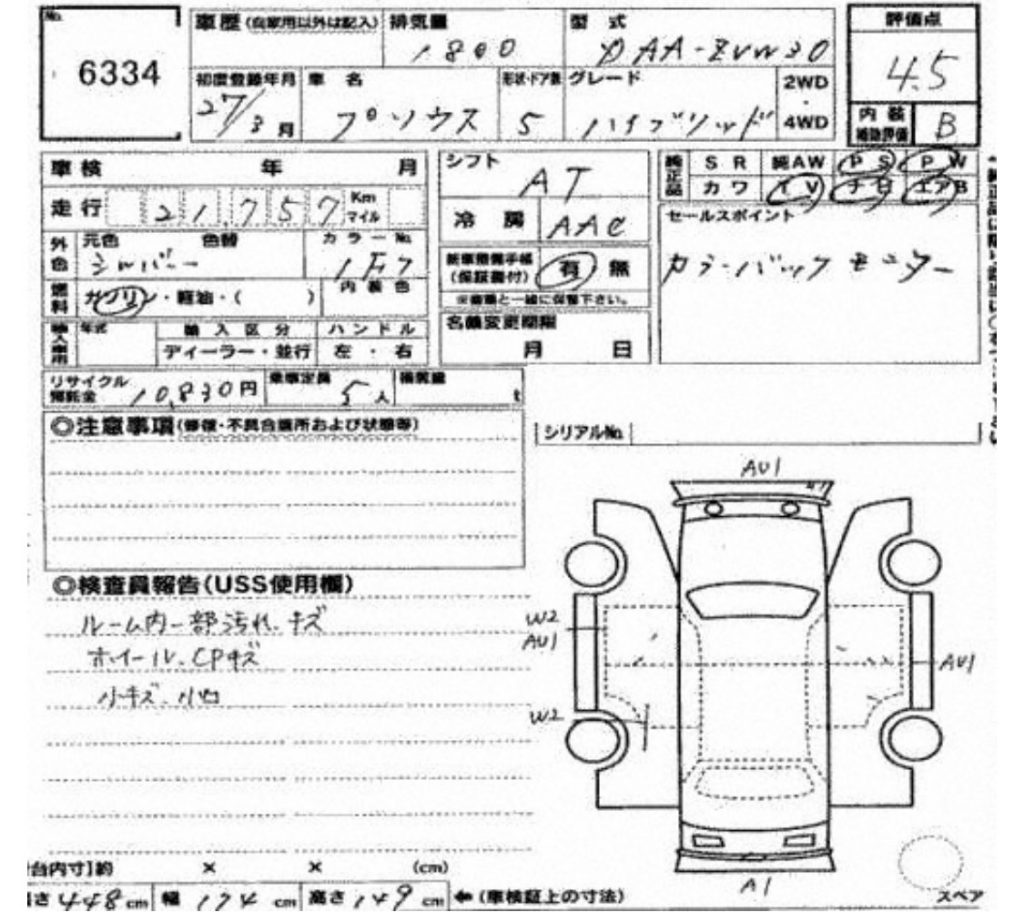 No.
6334
車歴(自家用以外は記入)
排気量
1800
型式
DAA-ZVW30
評価点
4.5
初度登録年月
27/3月
車名
プリウス
形状・ドア数
5
グレード
ハイブリッド
2WD
・
4WD
内装
補助評価
B
車検 年 月
走行 21,757 Km
マイル
シフト
AT
純正品
SR 純AW PS PW
カワ TV ナビ エアB
冷房
AAC
セールスポイント
カラーバックモニター
外色
元色 色替
シルバー
カラーNo.
1F7
内装色
燃料
ガソリン・軽油・( )
新車整備手帳
(保証書付)
有 無
※書類と一緒に保管下さい。
輸入車用
年式
輸入区分
ディーラー・並行
ハンドル
左・右
名義変更期限
月 日
リサイクル
預託金
10,830円
乗車定員
5人
積載量
t
◎注意事項(修復・不具合箇所および状態等)
シリアルNo.
AU1
◎検査員報告(USS使用欄)
ルーム内一部汚れ、キズ
ホイール、CPキズ
小キズ、小凹
W2
AU1
AU1
W2
A1
スペア
台内寸]約 × × (cm)
さ448cm 幅174cm 高さ149cm ←(車検証上の寸法)